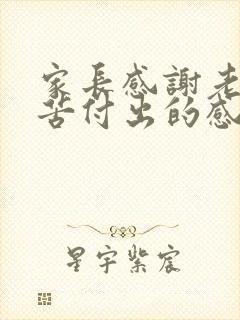 家長感謝老
苦付出的感
星宇紫宸